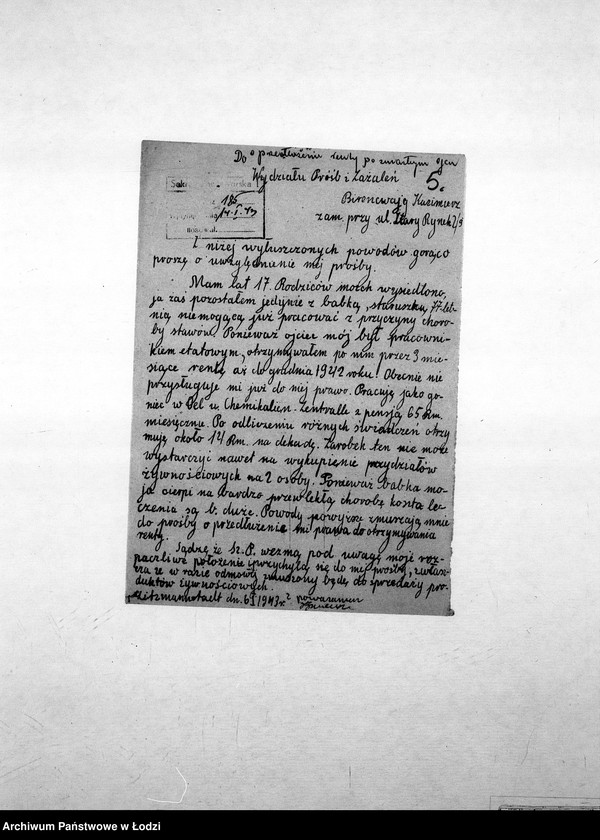 o przedłużenie renty po zmarłym ojcu
Do
Wydziału Próśb i Zażaleń
5.
Kazimierz
zam. przy ul. Stary Rynek 2/9
186
14.I.43
Z niżej wyłuszczonych powodów gorąco
proszę o uwzględnienie mej prośby.
Mam lat 17. Rodziców moich wysiedlono,
ja zaś pozostałem jedynie z babką, staruszką, 77-let-
nią niemogącą już pracować z przyczyny choro-
by stawów. Ponieważ ojciec mój był pracowni-
kiem etatowym, otrzymywałem po nim przez 3 mie-
siące rentę aż do grudnia 1942 roku! Obecnie nie
przysługuje mi już do niej prawo. Pracuję jako go-
niec w Gel u. Chemikalien. Zentralle z pensją 65 Rm.
miesięcznie. Po odliczeniu różnych świadczeń otrzy
muję około 14 Rm. na dekadę. Zarobek ten nie może
wystarczyć nawet na wykupienie przydziałów
żywnościowych na 2 osoby. Ponieważ babka mo-
ja cierpi na bardzo przewlekłą chorobę koszta le-
czenia są b. duże. Powody powyższe zmuszają mnie
do prośby o przedłużenie mi prawa do otrzymywania
renty.
Sądzę, że Sz. P. wezmą pod uwagę moje roz-
paczliwe położenie i przychylą się do mej prośby, zwłasz-
cza że w razie odmowy zmuszony będę do sprzedaży pro-
duktów żywnościowych.
Litzmannstadt dn. 6 I 1943 r. z poważaniem
Archiwum Państwowe w Łodzi